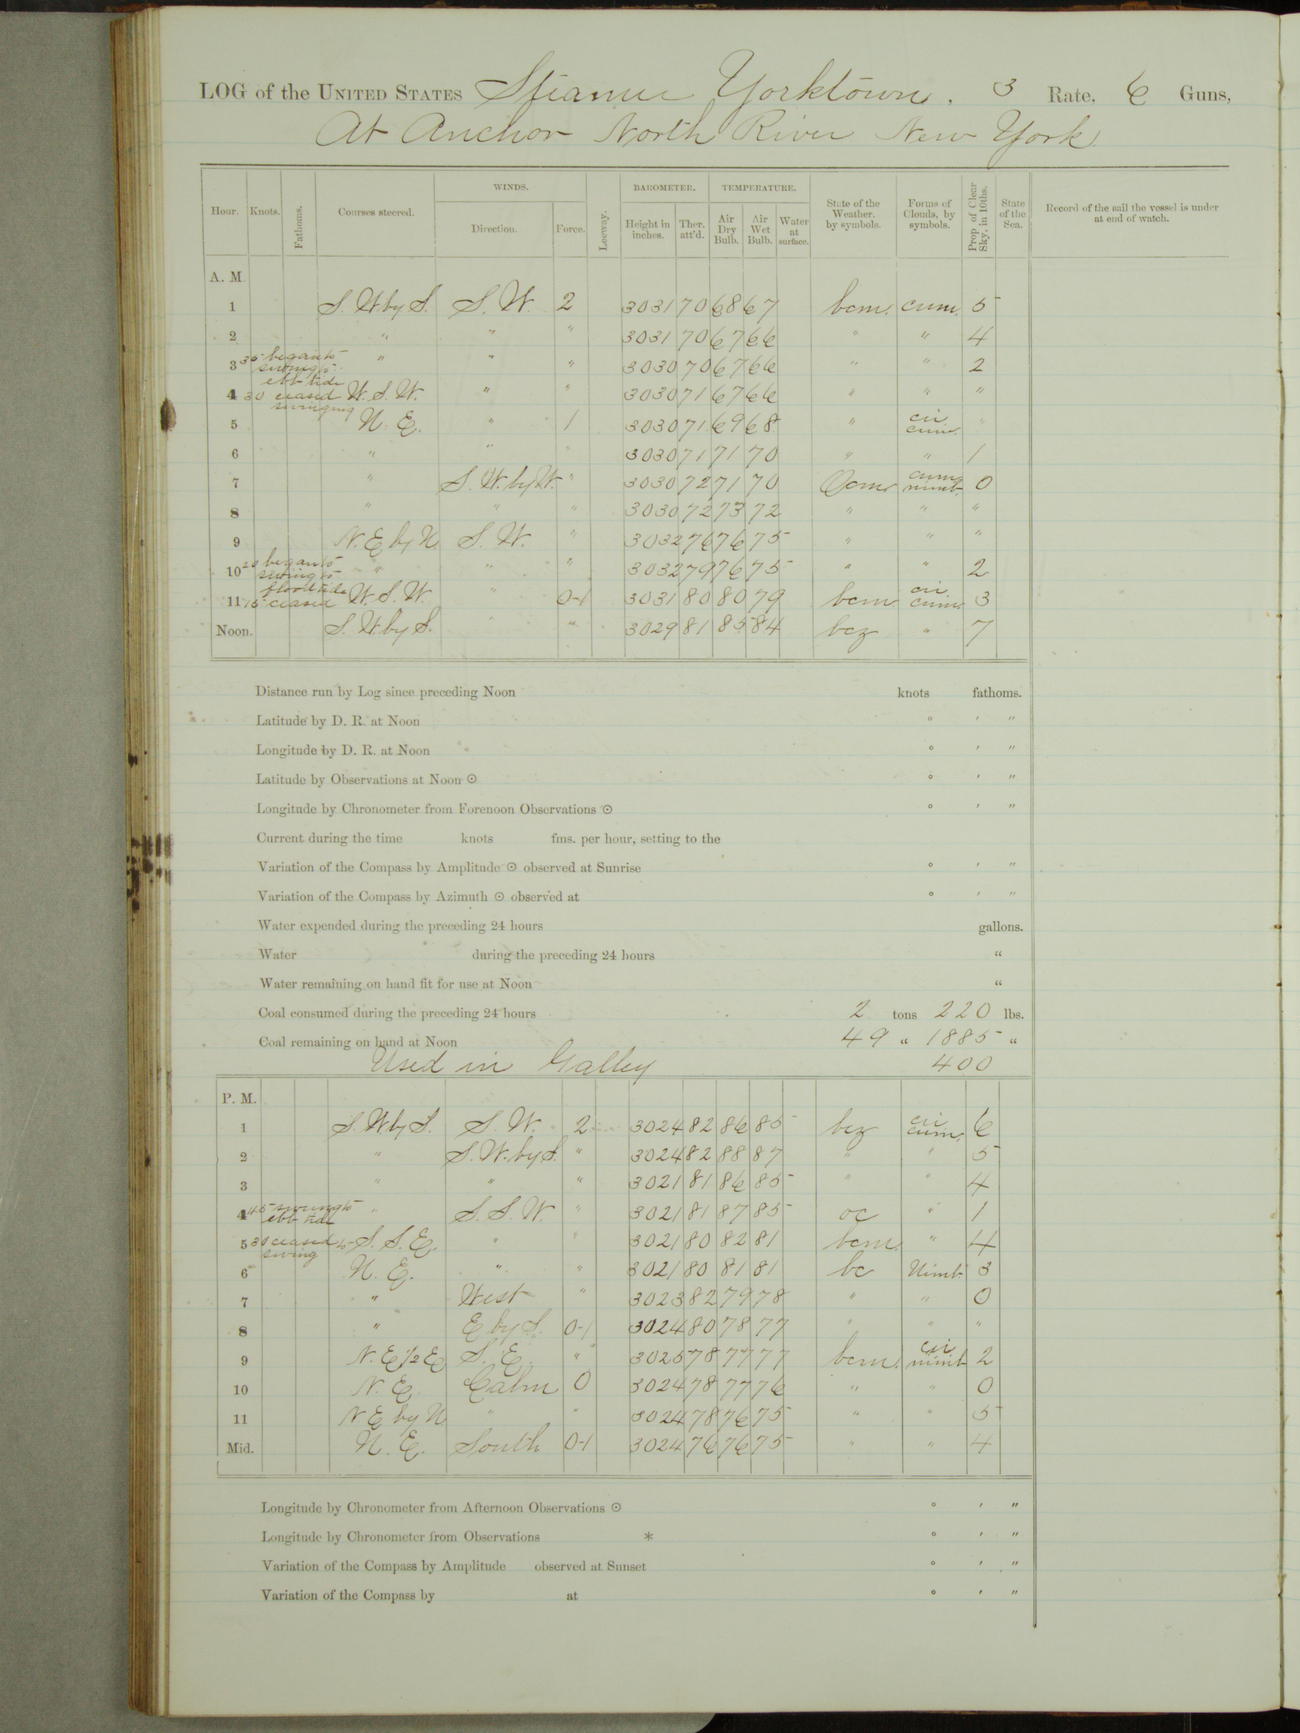 LOG of the UNITED STATES Steamer Yorktown. 3 Rate, 6 Guns,
At Anchor North River New York.
WINDS. BAROMETER. TEMPERATURE.
Hour. Knots. Fathoms. Courses steered. Direction. Force. Leeway. Height in inches. Ther. att'd. Air Dry Bulb. Air Wet Bulb. Water at surface. State of the Weather, by symbols. Forms of Clouds, by symbols. Prop of Clear Sky, in 10ths. State of the Sea. Record of the sail the vessel is under at end of watch.
A. M.
1 S. W. by S. S. W. 2 3031 70 68 67 bcm. cum. 5
2 " " " 3031 70 67 66 " " 4
3 35 began to swing to ebb tide " " " 3030 70 67 66 " " 2
4 30 ceased swinging W. S. W. " " 3030 71 67 66 " " "
5 N. E. " 1 3030 71 69 68 " cir cum. "
6 " " " 3030 71 71 70 " " 1
7 " S. W. by W. " 3030 72 71 70 Ocm cum nimb. 0
8 " " " 3030 72 73 72 " " "
9 N. E by N S. W. " 3032 76 76 75 " " "
10 20 began to swing to flood tide " " " 3032 79 76 75 " " 2
11 15 ceased W. S. W. " 0-1 3031 80 80 79 bcm cir cum. 3
Noon. S. W. by S. " " 3029 81 85 84 bcz " 7
Distance run by Log since preceding Noon knots fathoms.
Latitude by D. R. at Noon ° ′ ″
Longitude by D. R. at Noon ° ′ ″
Latitude by Observations at Noon ☉ ° ′ ″
Longitude by Chronometer from Forenoon Observations ☉ ° ′ ″
Current during the time knots fms. per hour, setting to the
Variation of the Compass by Amplitude ☉ observed at Sunrise ° ′ ″
Variation of the Compass by Azimuth ☉ observed at ° ′ ″
Water expended during the preceding 24 hours gallons.
Water during the preceding 24 hours "
Water remaining on hand fit for use at Noon "
Coal consumed during the preceding 24 hours 2 tons 220 lbs.
Coal remaining on hand at Noon 49 " 1885 "
Used in Galley 400
P. M.
1 S. W by S. S. W. 2 3024 82 86 85 bcz cir cum. 6
2 " S. W. by S. " 3024 82 88 87 " " 5
3 " " " 3021 81 86 85 " " 4
4 45 swung to ebb tide " S. S. W. " 3021 81 87 85 oc " 1
5 30 ceased to swing S. S. E. " " 3021 80 82 81 bcm. " 4
6 N. E. " " 3021 80 81 81 bc Nimb 3
7 " West " 3023 82 79 78 " " 0
8 " E by S. 0-1 3024 80 78 77 " " "
9 N. E ½ E S. E. " 3025 78 77 77 bcm. cir nimb 2
10 N. E. Calm 0 3024 78 77 76 " " 0
11 N E by N " " 3024 78 76 75 " " 5
Mid. N. E. South 0-1 3024 76 76 75 " " 4
Longitude by Chronometer from Afternoon Observations ☉ ° ′ ″
Longitude by Chronometer from Observations * ° ′ ″
Variation of the Compass by Amplitude observed at Sunset ° ′ ″
Variation of the Compass by at ° ′ ″